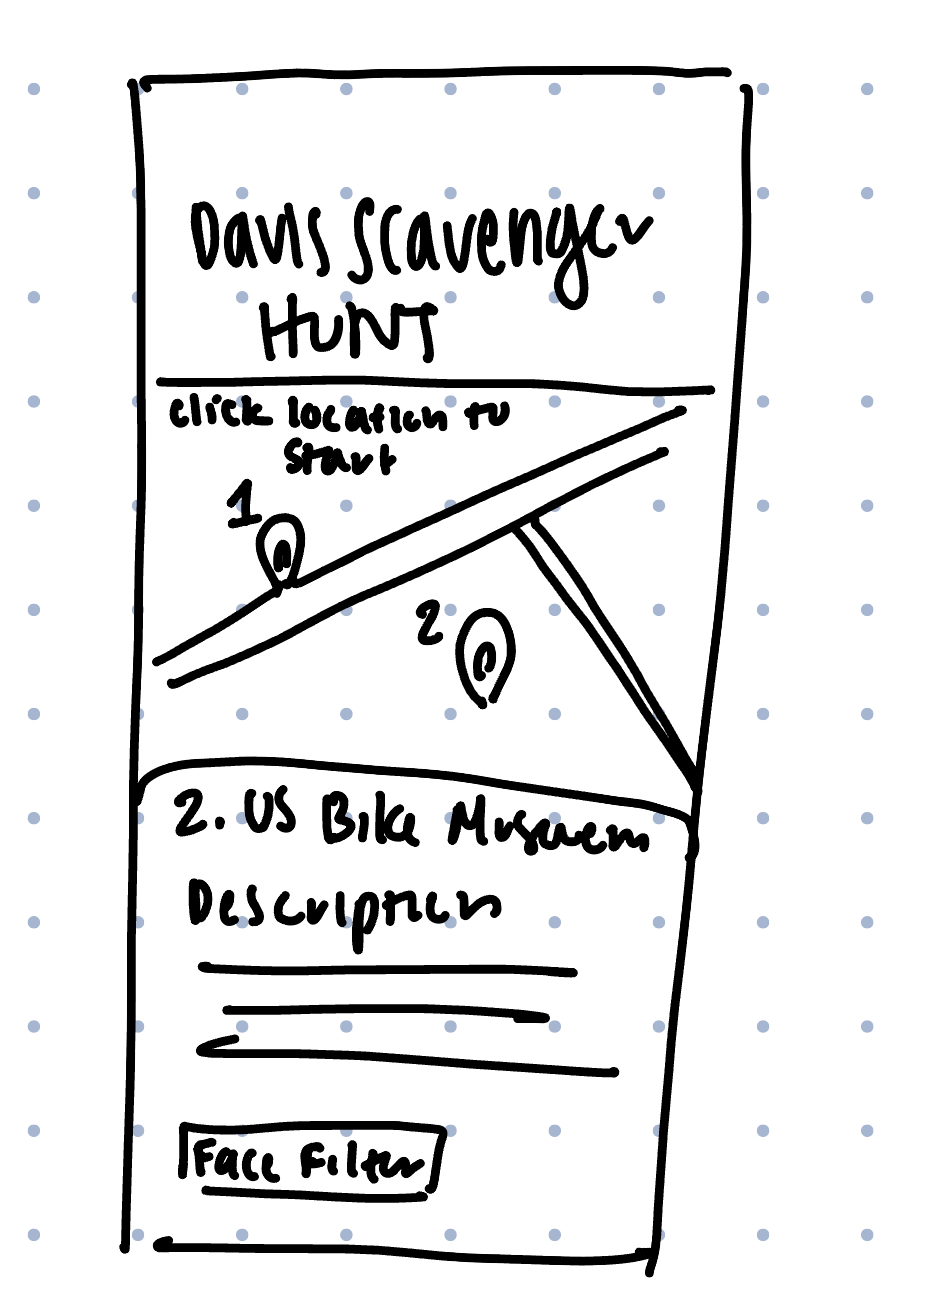 Davis Scavenger
HUNT
click location to
start
1
2
2. US Bike Museuem
Description
Face Filter